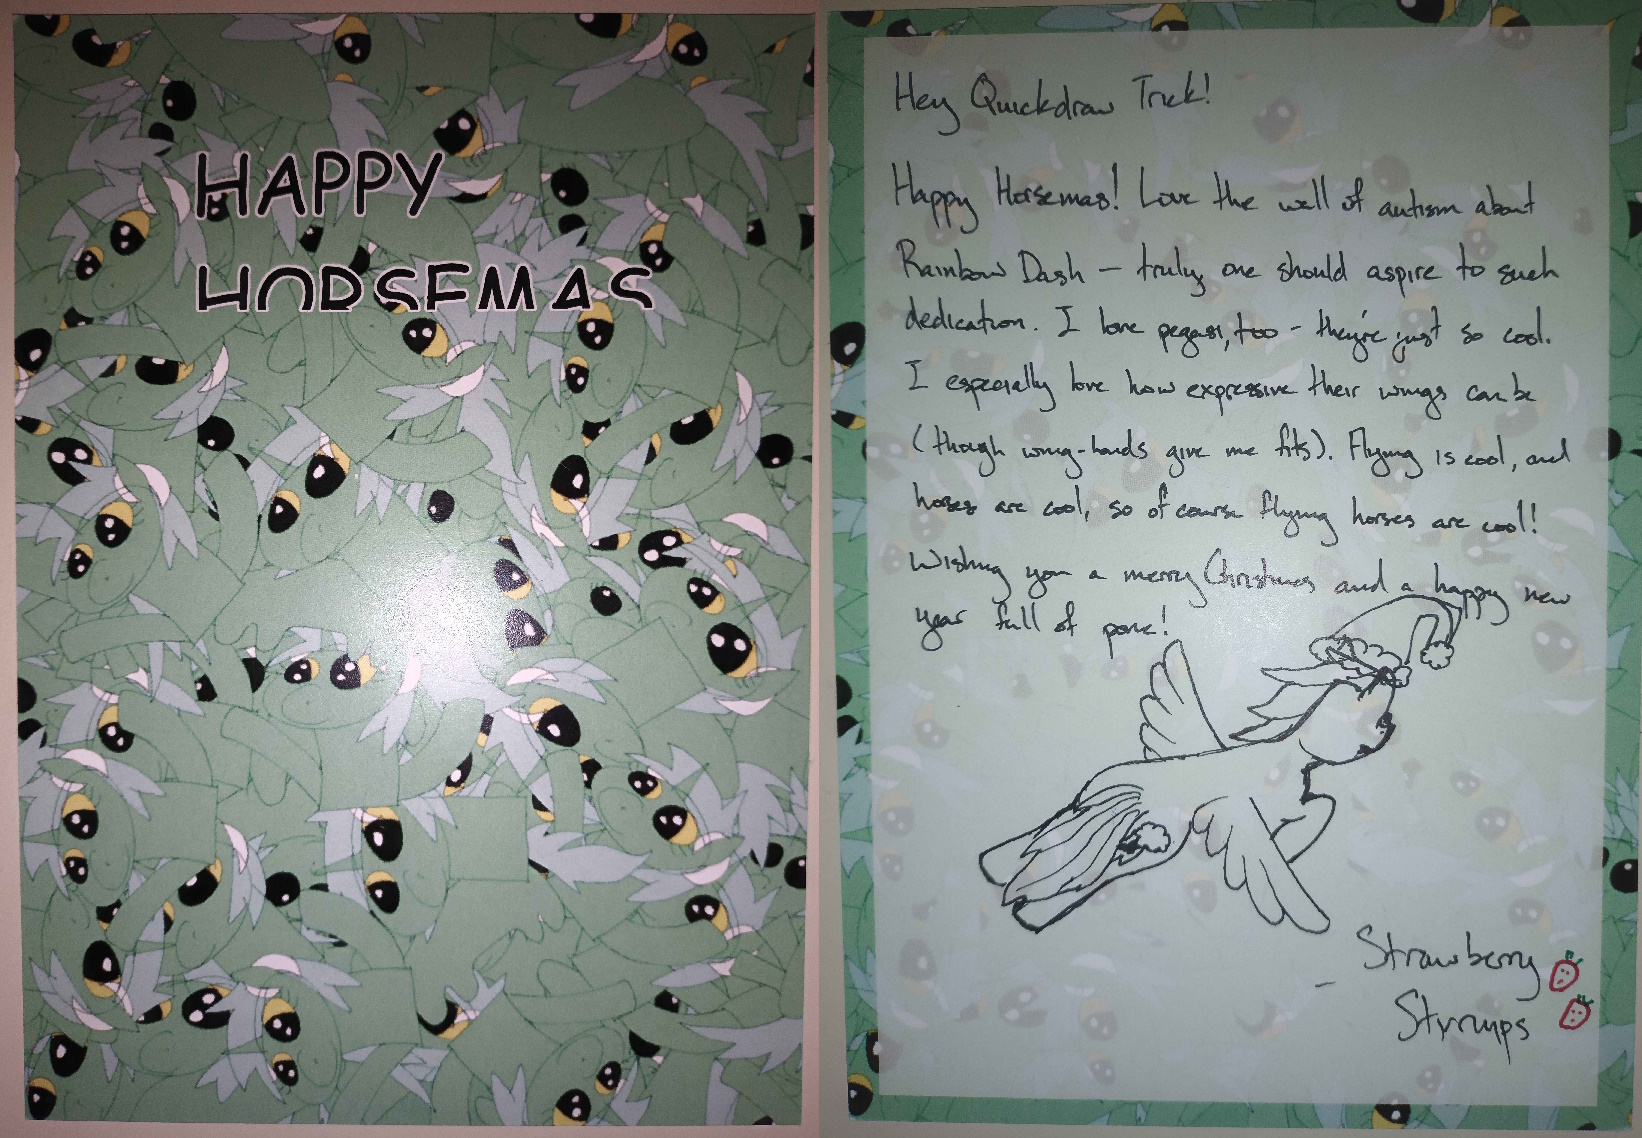 HAPPY
HORSEMAS
Hey Quickdraw Trick!
Happy Horsemas! Love the wall of autism about
Rainbow Dash – truly one should aspire to such
dedication. I love pegasi, too – they're just so cool.
I especially love how expressive their wings can be
(though wing-hands give me fits). Flying is cool, and
horses are cool, so of course flying horses are cool!
Wishing you a merry Christmas and a happy new
year full of pone!
– Strawberry
Stirrups